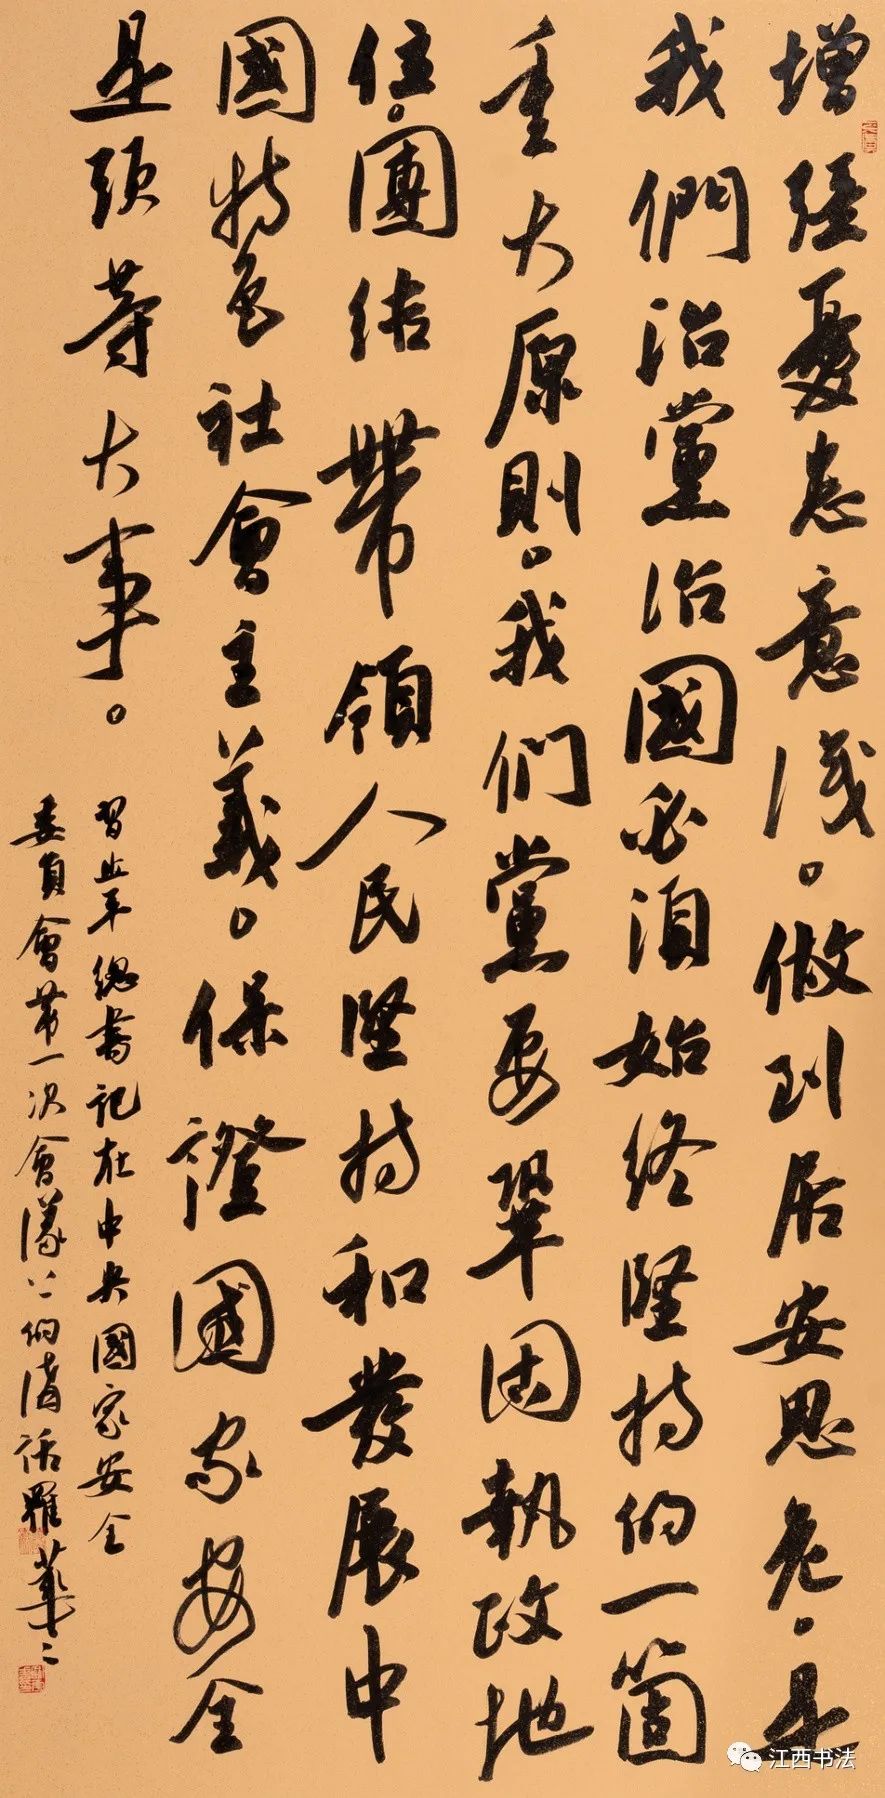 增强憂患意识。做到居安思危。是
我們治黨治國必須始终堅持的一箇
重大原則。我们黨要鞏固執政地
位。團结帶領人民堅持和發展中
國特色社會主義。保證國家安全
是頭等大事。
習近平總書記在中央國家安全
委員會第一次會議上的講话羅華二
江西书法